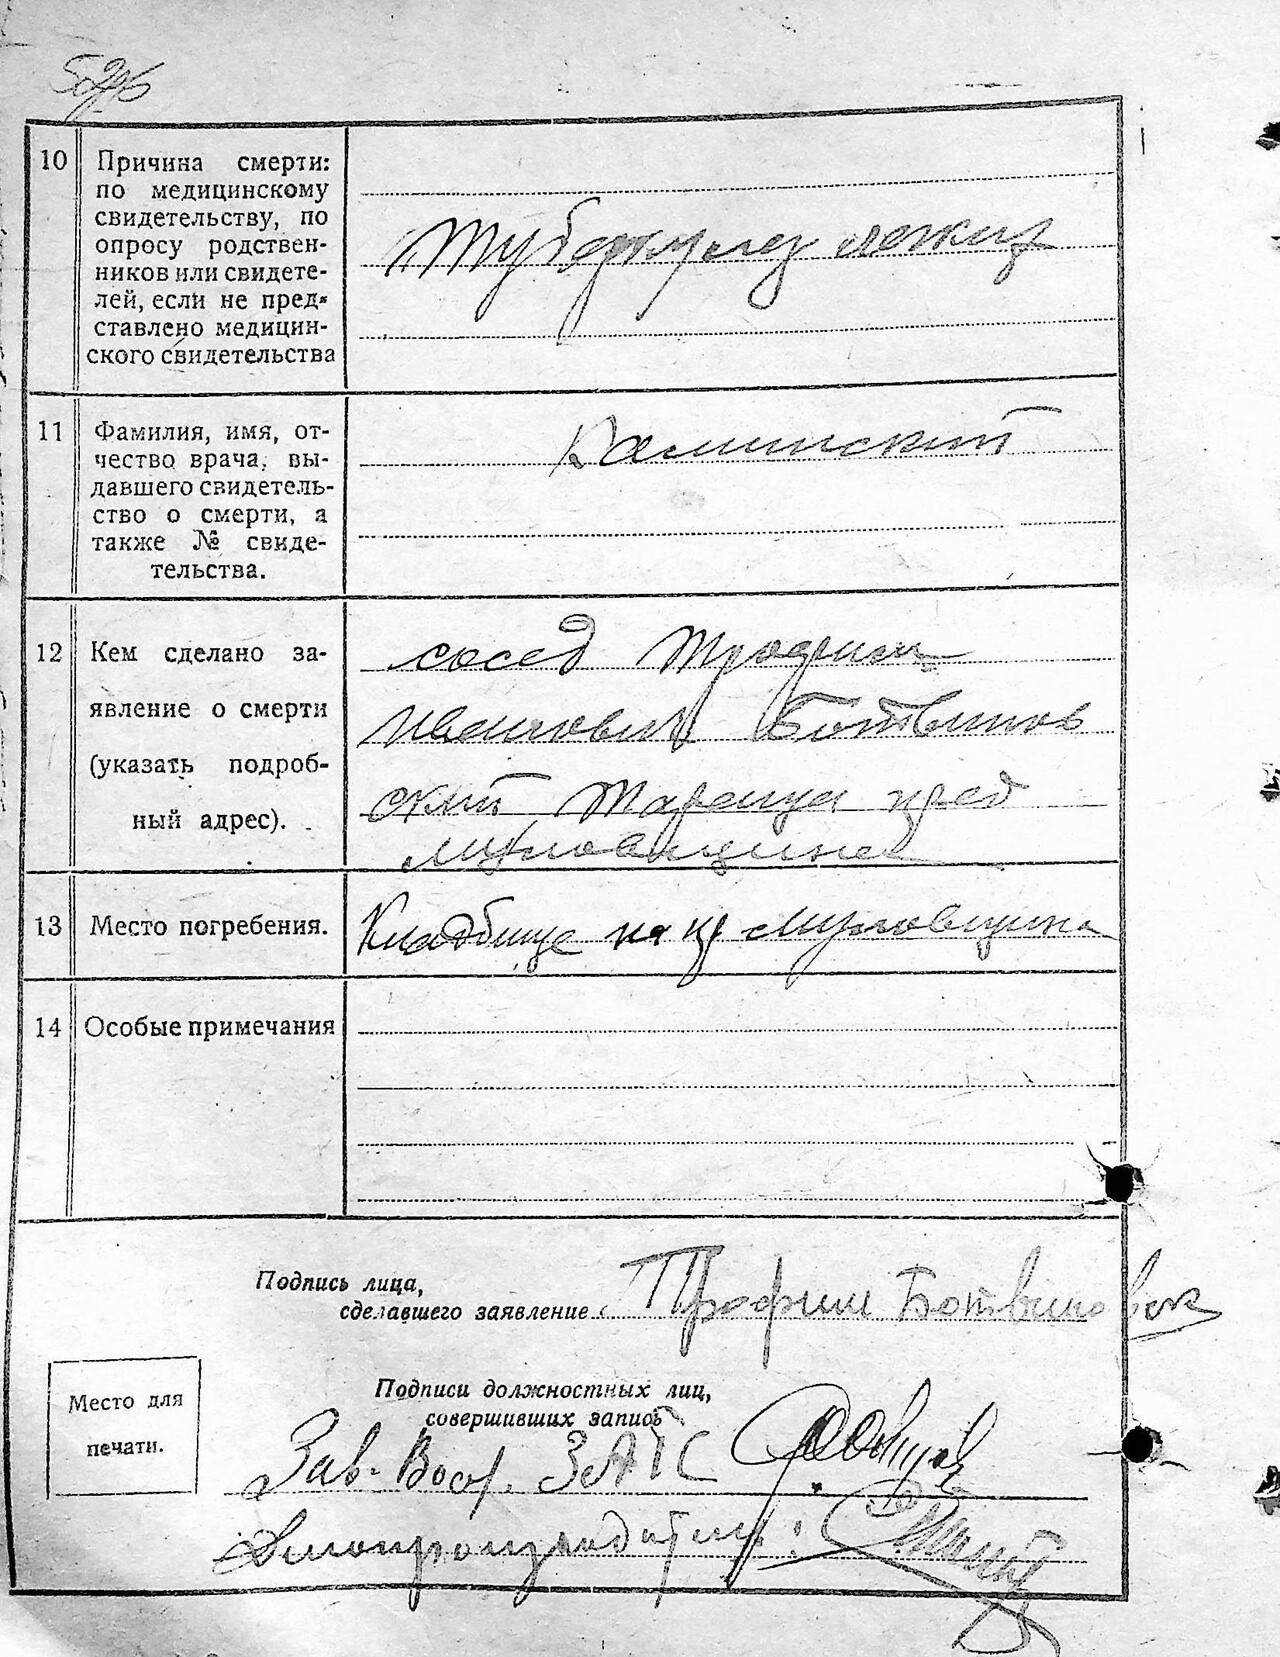 10 Причина смерти:
по медицинскому
свидетельству, по
опросу родствен-
ников или свидете-
лей, если не пред-
ставлено медицин-
ского свидетельства
Туберкулез легких
11 Фамилия, имя, от-
чество врача, вы-
давшего свидетель-
ство о смерти, а
также № свиде-
тельства.
Калинский
12 Кем сделано за-
явление о смерти
(указать подроб-
ный адрес).
сосед Трофим
Иванович Ботвинов
ский Тараща пред
13 Место погребения.
Кладбище на
14 Особые примечания
Подпись лица,
сделавшего заявление Трофим Ботвиновск
Место для
печати.
Подписи должностных лиц,
совершивших запись
Зав. ЗАГС
Делопроизводитель: